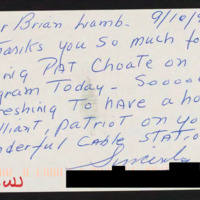 r Brian Lamb- 9/10/9
hanks you so much fo
ing PAT Choate on
gram Today- Soooo
freshing To have a ho
lliant, patriot on yo
nderful Cable Statio
Sincerely